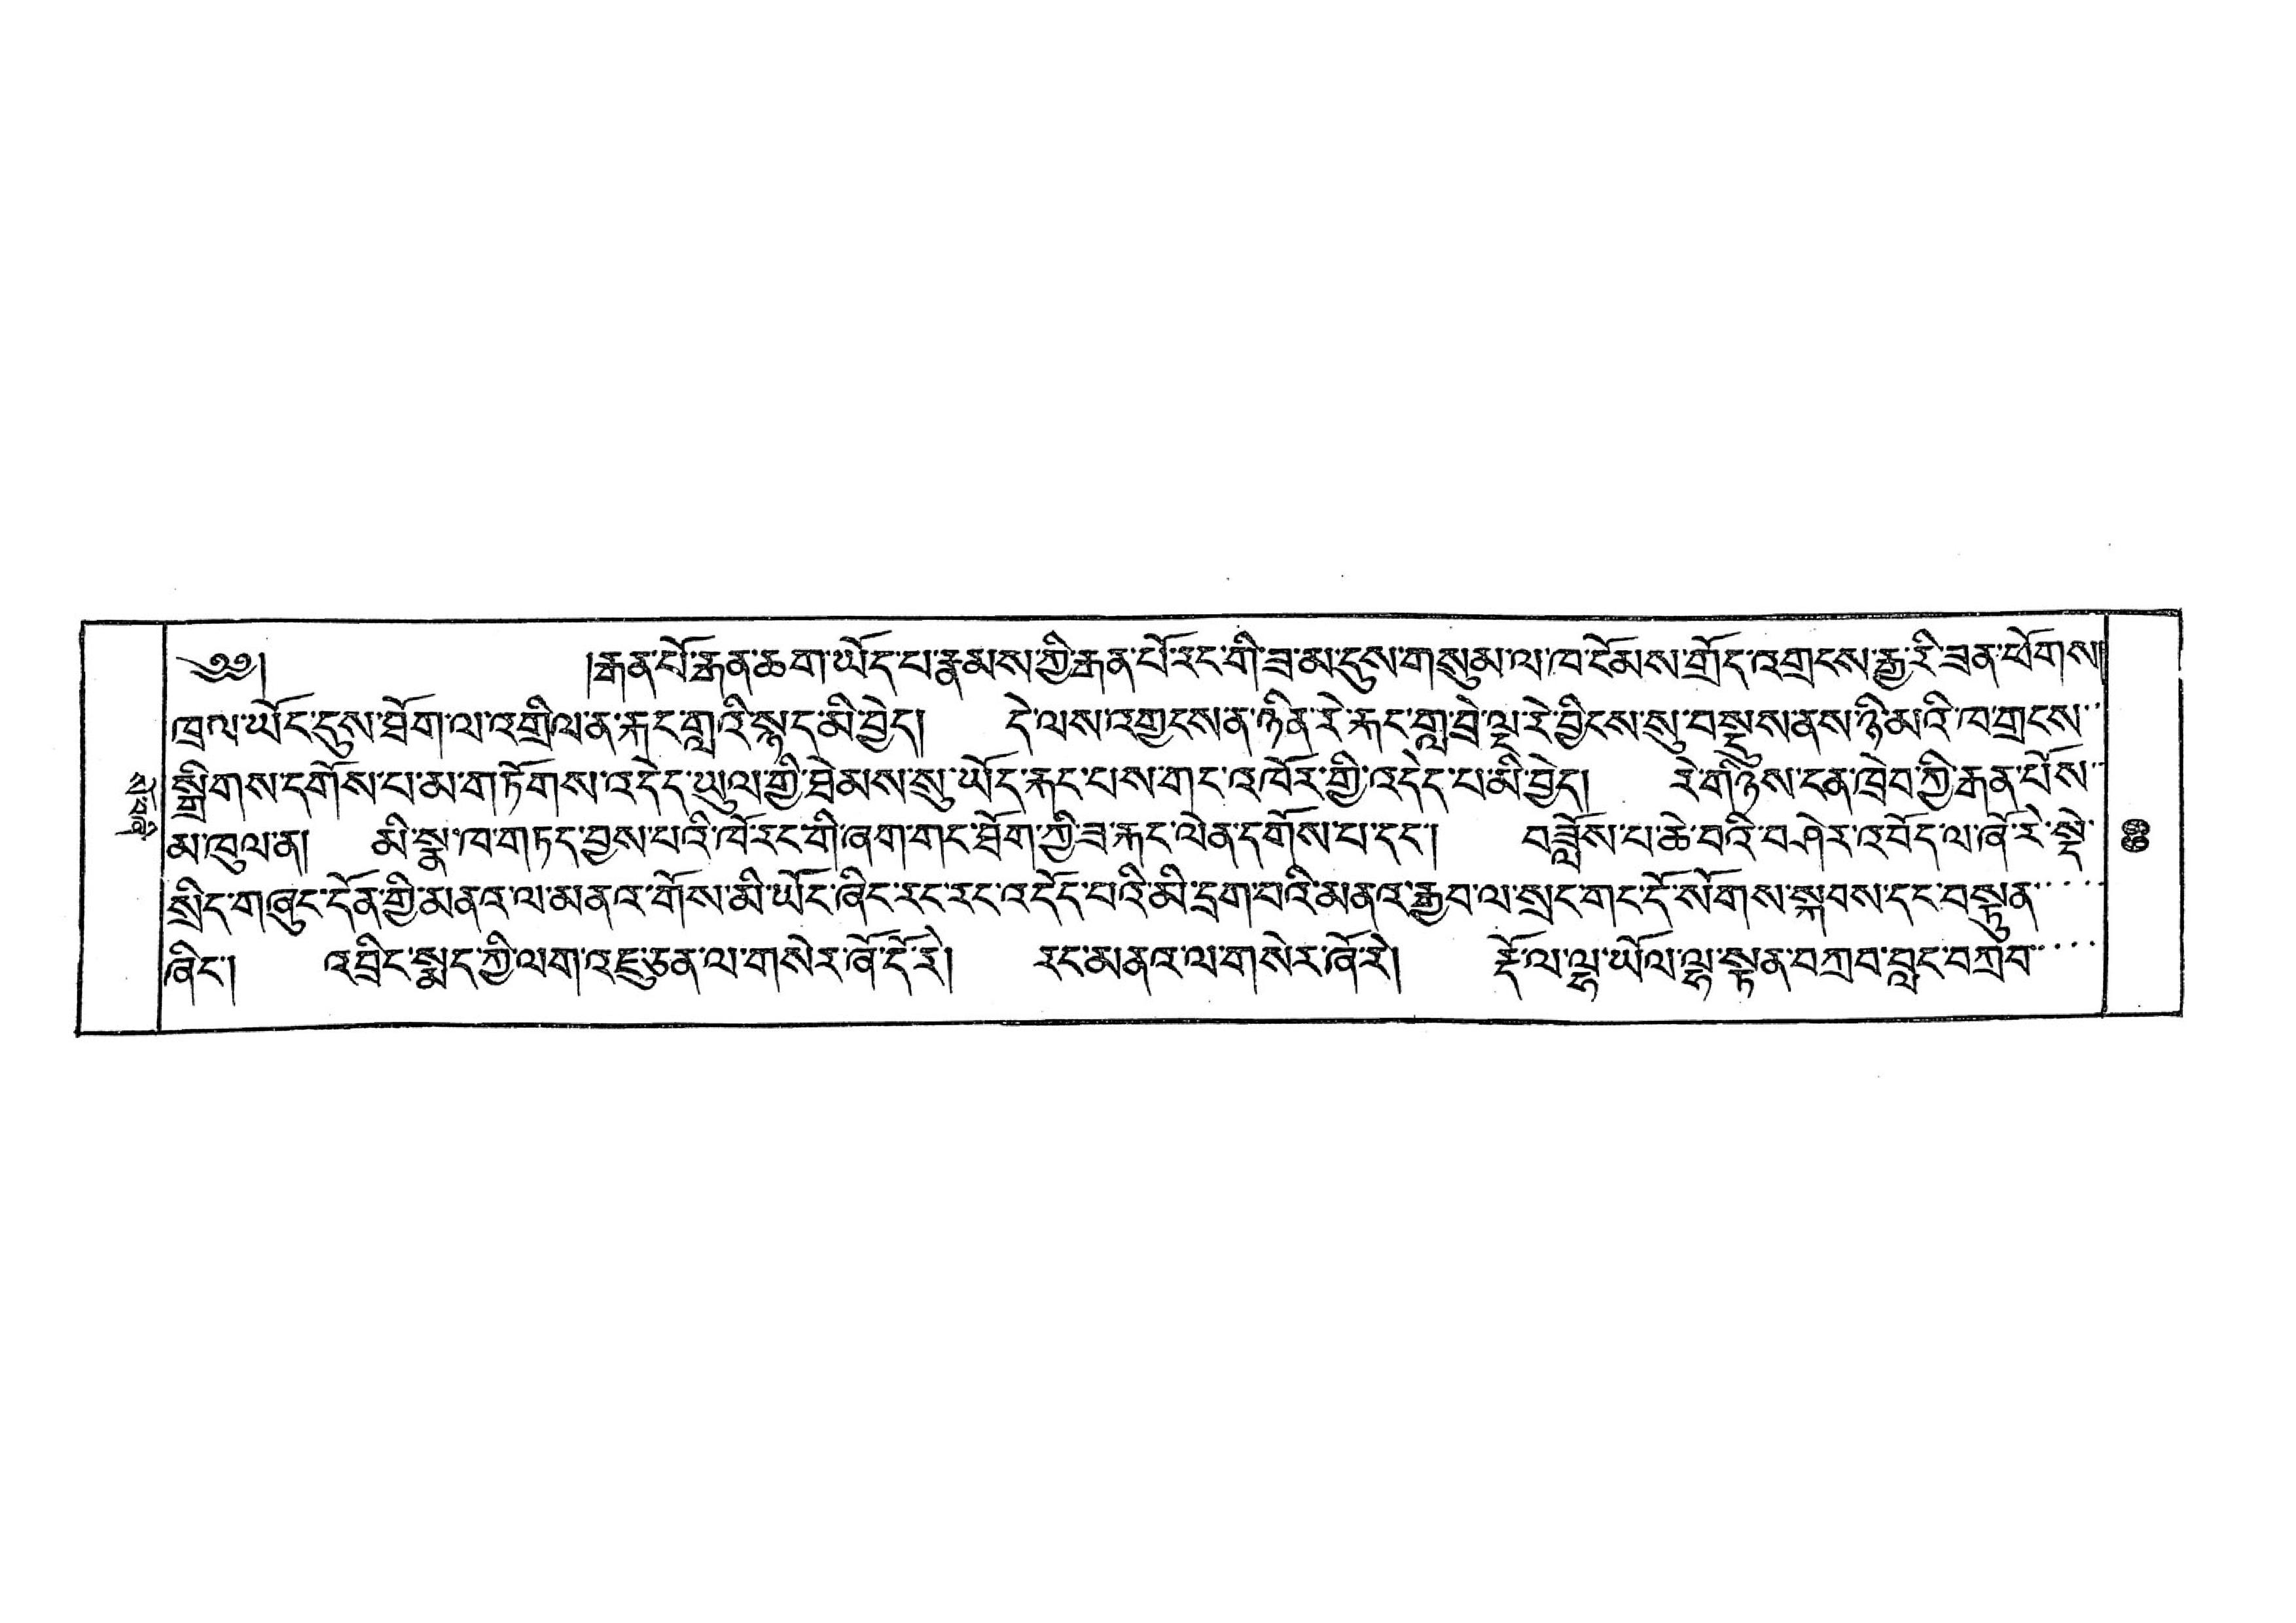 ༄༅། །རྒན་པོ་རྒན་ཆག་ཡོད་པ་རྣམས་ཀྱི་རྒན་པོ་རང་གི་ཟ་མ་དུས་གསུམ་ལ་ཁ་ངོམས་གྲོད་འགྲངས་རྒྱ་རི་ཟན་ཕོགས།
ཁྲལ་ཡོང་དུས་ཐོག་ལ་འགྲིལ་ན་རྐང་གླའི་སྐད་མི་བྱེད། དེ་ལས་འགྱངས་ན་ཉིན་རེ་རྐང་གླ་བྲེ་ལྔ་རེ་བྱིངས་སུ་བསྡུས་ནས་ཉི་མའི་ཁ་གྲངས་
སྒྲིགས་དགོས་པ་མ་གཏོགས་འདེད་ཡུལ་གྱི་ཐེམས་སུ་ཡོད་རྐང་པས་གང་འཁོར་གྱི་འདེད་པ་མི་བྱེད། རེ་གཉིས་ངན་ཁྲེབ་ཀྱི་རྒན་པོས་
མ་ཁུལ་ན། མི་སྣ་ཁ་གཏད་བྱས་པའི་ཁོ་རང་གི་ཞག་གང་ཐོག་ཀྱི་ཟ་རྐང་ལེན་དགོས་པ་དང་། བཟློས་པ་ཆེ་བའི་བཤེར་འབོད་ལ་ཞོ་རེ་སྡེ་
སྲིད་གཞུང་དོན་གྱི་མནའ་ལ་མནའ་གོས་མི་ཡོང་ཞིང་རང་རང་འདོད་པའི་མི་དྲག་པའི་མནའ་རྒྱབ་ལ་སྲང་གང་དོ་སོགས་སྐབས་དང་བསྟུན
ཞིང་། འབྲིང་སྨད་ཀྱི་ལག་འཇུ་ཅན་ལ་གསེར་ཞོ་དོ་རེ། རང་མནའ་ལ་གསེར་ཞོ་རེ། རྡོ་ལ་ལྷ་ཡོལ་ལྷ་སྟན་བཀྲབ་བླང་བཀྲབ